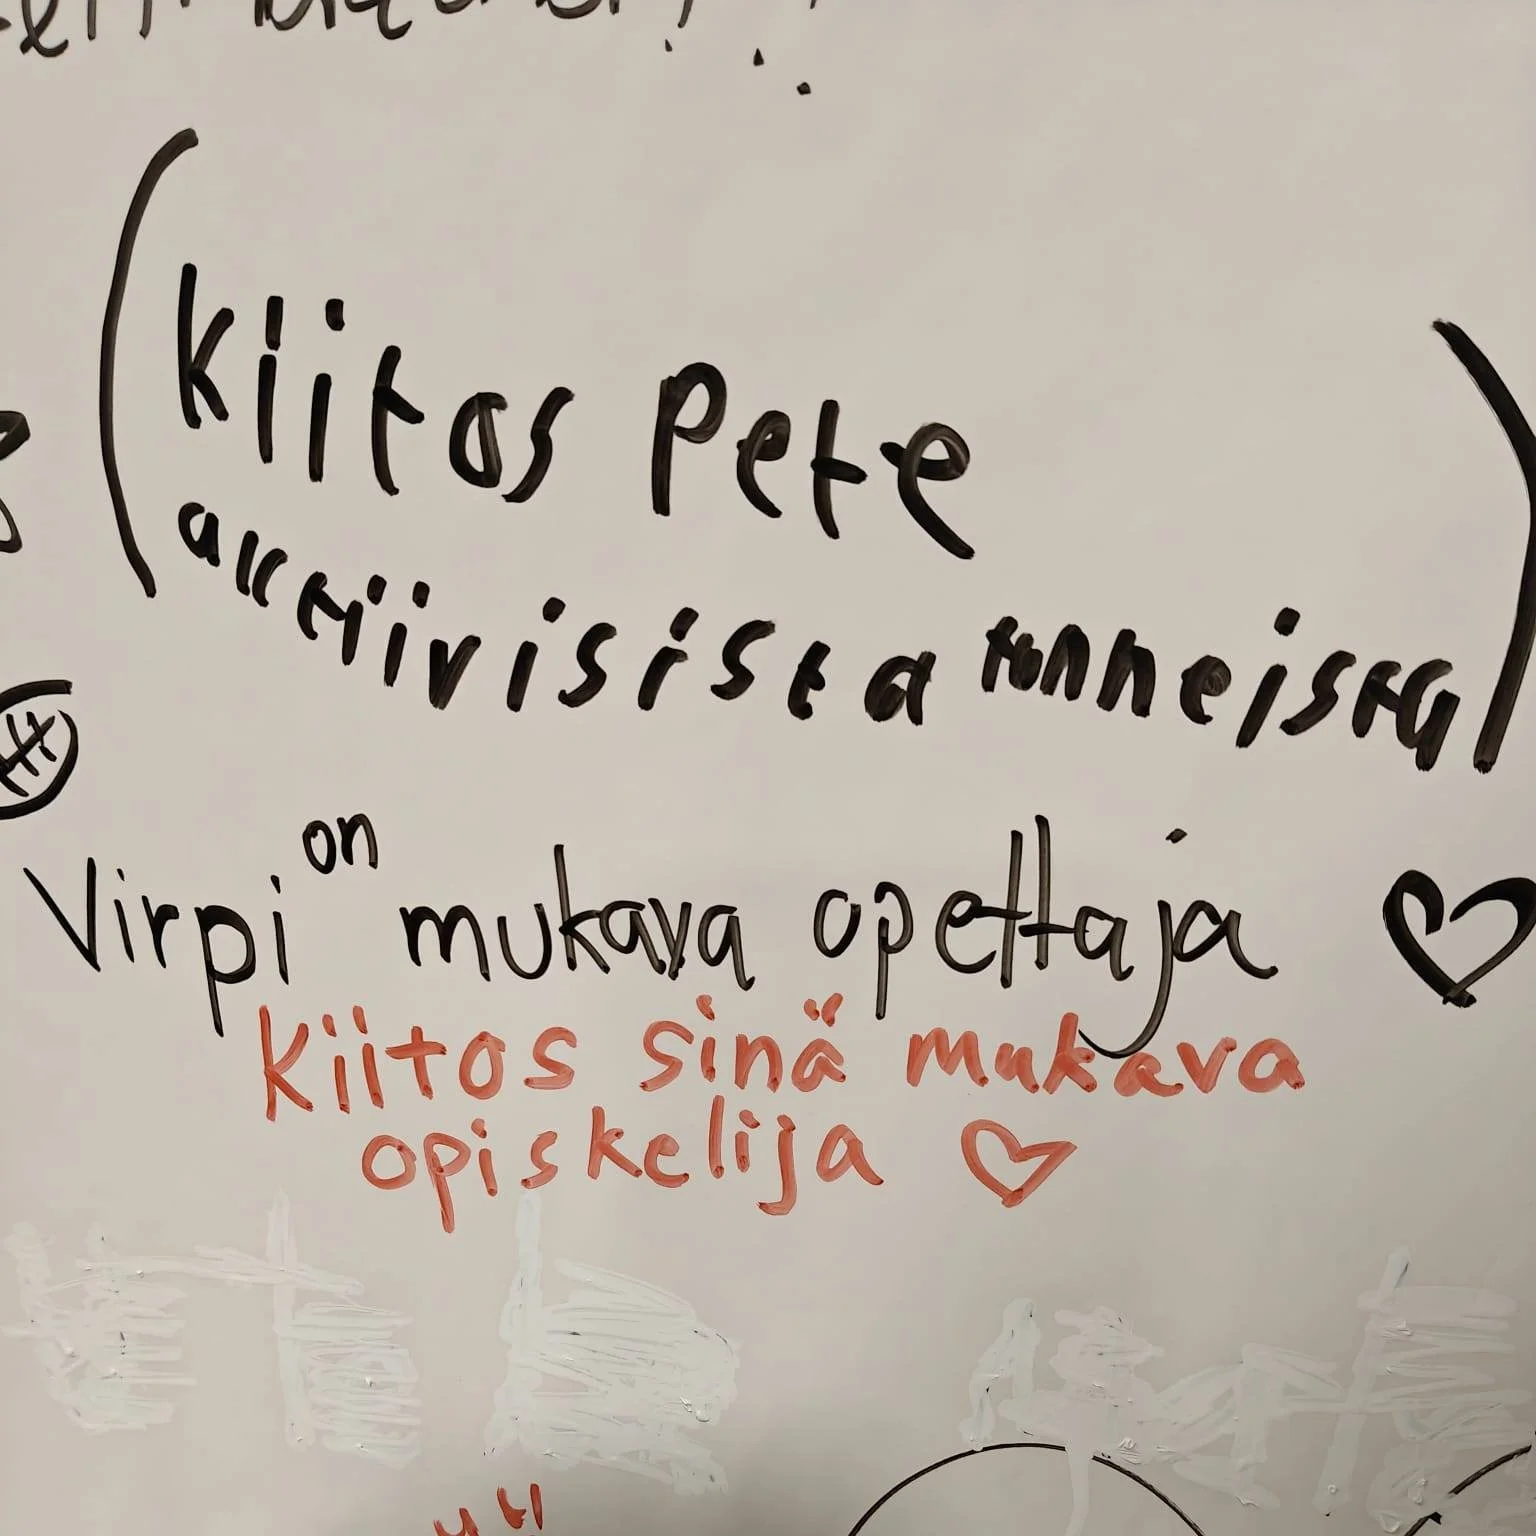 (kiitos Pete
aktiivisista tunneista)
Virpi on mukava opettaja ♡
kiitos sinä mukava
opiskelija ♡